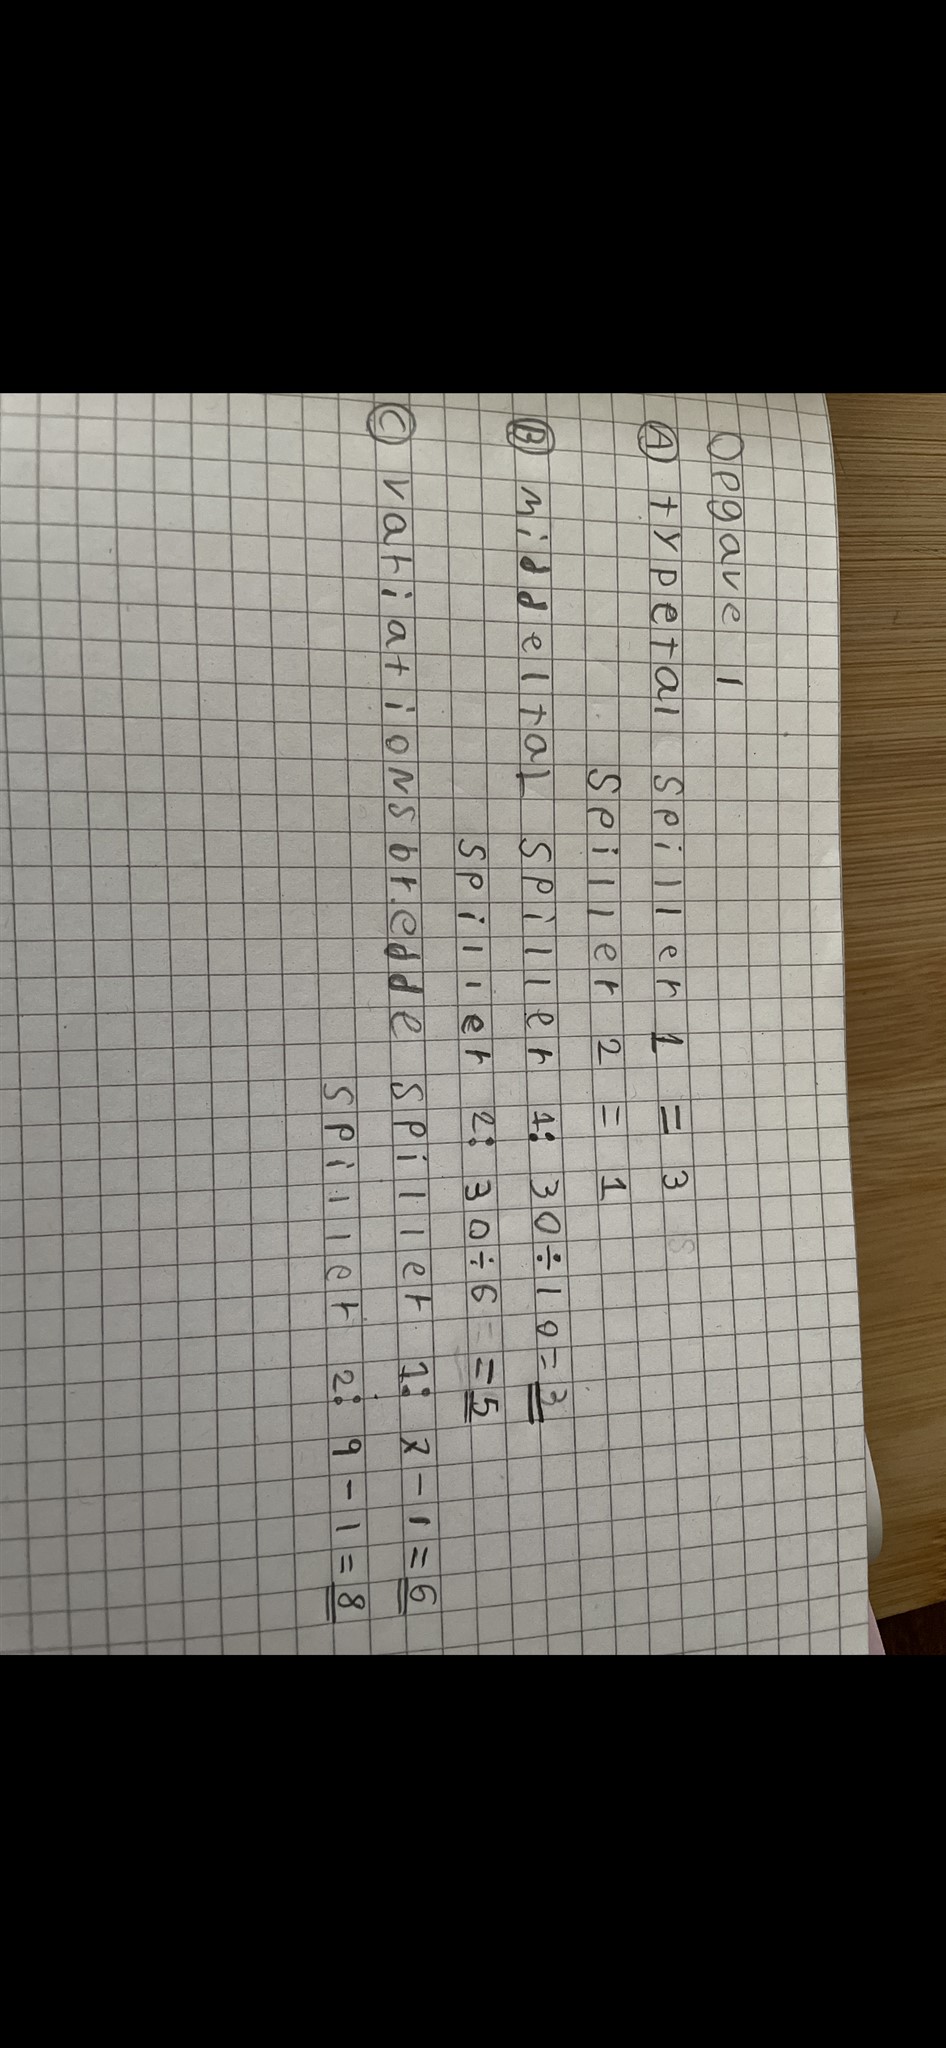 Opgave 1
A typetal Spiller 1 = 3
Spiller 2 = 1
B middeltal Spiller 1: 30÷10=3
Spiller 2: 30÷6 = 5
C variationsbredde Spiller 1: 7-1=6
Spiller 2: 9-1=8